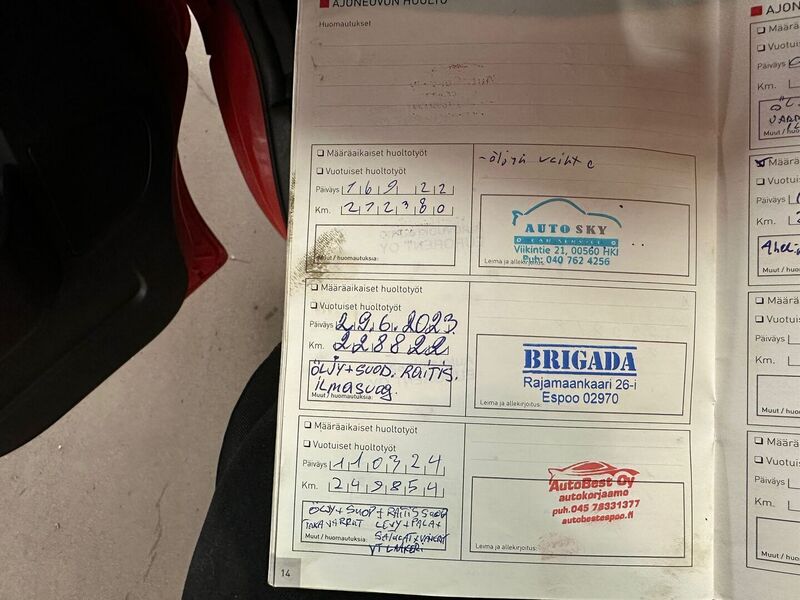 AJONEUVON HUOLTO
Huomautukset
Määräaikaiset huoltotyöt
Vuotuiset huoltotyöt
Päiväys 16 9 22
Km. 212380
Muut / huomautuksia:
- öljyn vaihto
AUTO SKY
CAR SERVICE
Viikintie 21, 00560 HKI
Puh: 040 762 4256
Leima ja allekirjoitus:
Määräaikaiset huoltotyöt
Vuotuiset huoltotyöt
Päiväys 29.6.2023
Km. 228822
ÖLJY + SUOD. RAITIS.
ILMASUOD.
Muut / huomautuksia:
BRIGADA
Rajamaankaari 26-i
Espoo 02970
Leima ja allekirjoitus:
Määräaikaiset huoltotyöt
Vuotuiset huoltotyöt
Päiväys 110324
Km. 249854
ÖLJY + SUOD + RAITIS SUOD
TAKA VARRUT LEVY + PALAT
Muut / huomautuksia:
AutoBest Oy
autokorjaamo
puh.045 78331377
autobestespoo.fi
Leima ja allekirjoitus:
14
AJON
Määrä
Vuotui
Päiväys
Km.
Muut / huo
Määrä
Vuotui
Päiväys
Km.
Muut / huo
Määrä
Vuotui
Päiväys
Km.
Muut / huo
Määrä
Vuotui
Päiväys
Km.
Muut / huo